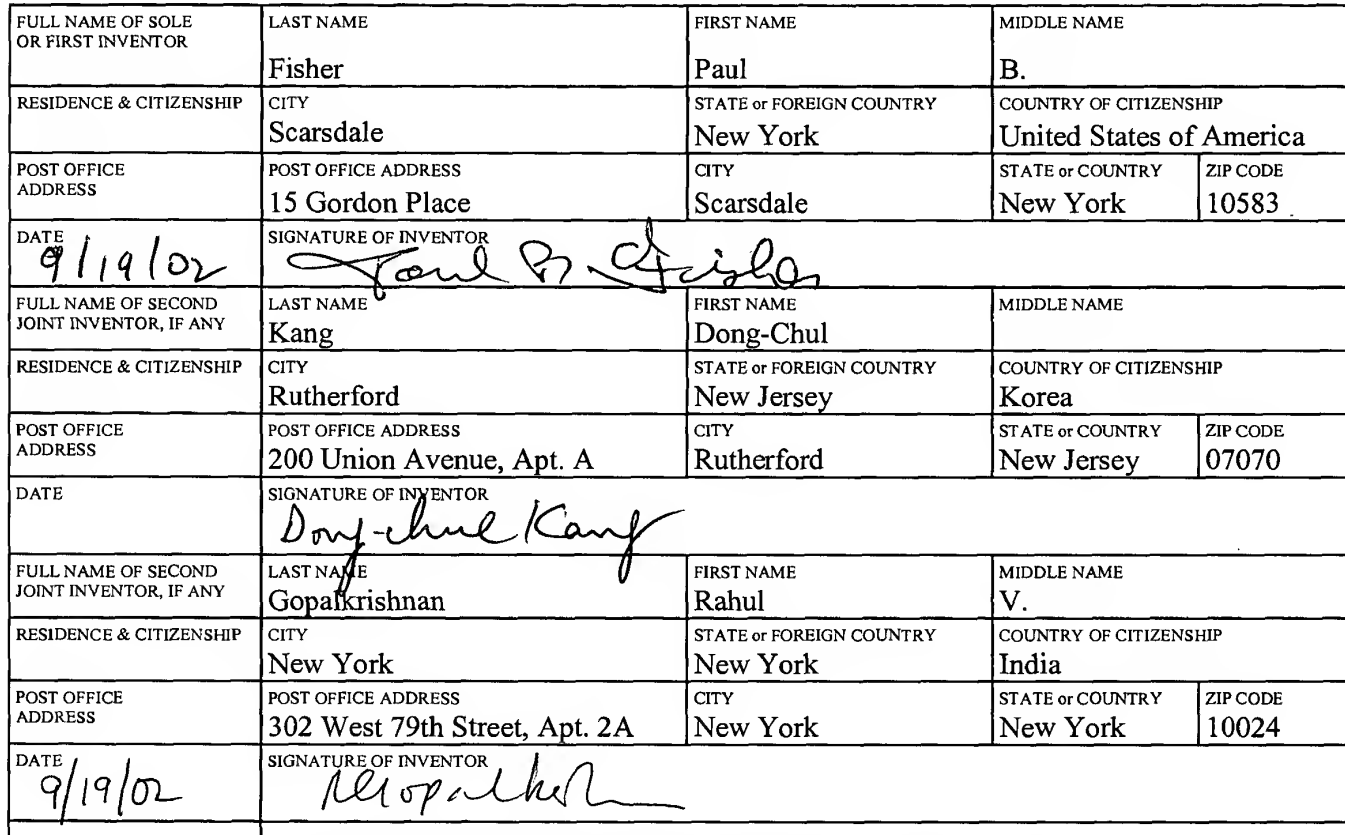 FULL NAME OF SOLE
OR FIRST INVENTOR
LAST NAME
Fisher
FIRST NAME
Paul
MIDDLE NAME
B.
RESIDENCE & CITIZENSHIP
CITY
Scarsdale
STATE or FOREIGN COUNTRY
New York
COUNTRY OF CITIZENSHIP
United States of America
POST OFFICE
ADDRESS
POST OFFICE ADDRESS
15 Gordon Place
CITY
Scarsdale
STATE or COUNTRY
New York
ZIP CODE
10583
DATE
9/19/02
SIGNATURE OF INVENTOR
Paul B. Fisher
FULL NAME OF SECOND
JOINT INVENTOR, IF ANY
LAST NAME
Kang
FIRST NAME
Dong-Chul
MIDDLE NAME
RESIDENCE & CITIZENSHIP
CITY
Rutherford
STATE or FOREIGN COUNTRY
New Jersey
COUNTRY OF CITIZENSHIP
Korea
POST OFFICE
ADDRESS
POST OFFICE ADDRESS
200 Union Avenue, Apt. A
CITY
Rutherford
STATE or COUNTRY
New Jersey
ZIP CODE
07070
DATE
SIGNATURE OF INVENTOR
Dong-chul Kang
FULL NAME OF SECOND
JOINT INVENTOR, IF ANY
LAST NAME
Gopalkrishnan
FIRST NAME
Rahul
MIDDLE NAME
V.
RESIDENCE & CITIZENSHIP
CITY
New York
STATE or FOREIGN COUNTRY
New York
COUNTRY OF CITIZENSHIP
India
POST OFFICE
ADDRESS
POST OFFICE ADDRESS
302 West 79th Street, Apt. 2A
CITY
New York
STATE or COUNTRY
New York
ZIP CODE
10024
DATE
9/19/02
SIGNATURE OF INVENTOR